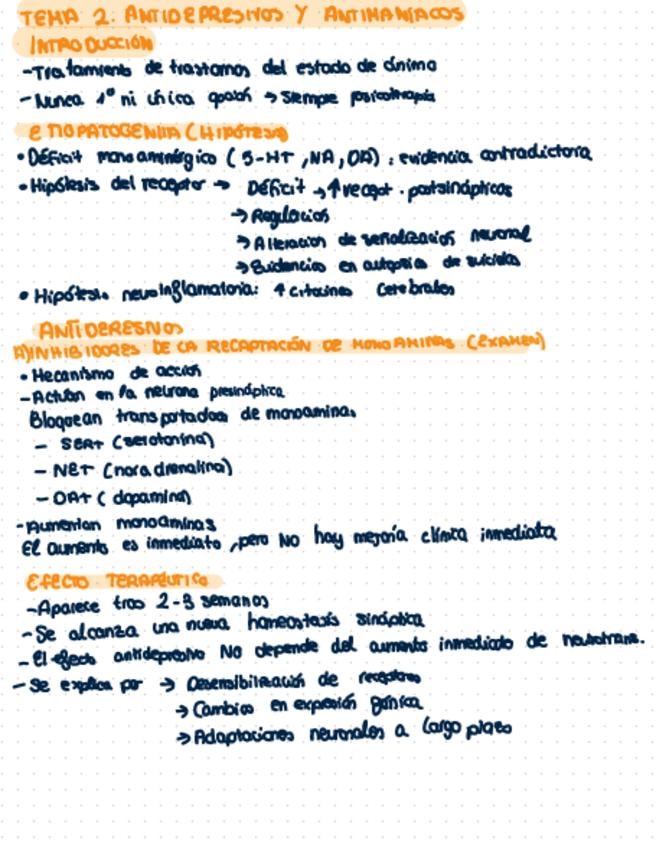 TEMA 2: ANTIDEPRESIVOS Y ANTIMANÍACOS
INTRODUCCIÓN
-Tratamiento de trastornos del estado de ánimo
- Nunca 1ª ni única opción → siempre psicoterapia
ETIOPATOGENIA (HIPÓTESIS)
• Déficit monoaminérgico (5-HT, NA, DA): evidencia contradictoria
• Hipótesis del receptor → Déficit → ↑ recept. postsinápticos
→ Regulación
→ Alteración de señalización neuronal
→ Evidencias en autopsias de suicidas
• Hipótesis neuroinflamatoria: ↑ citocinas cerebrales
ANTIDERESIVOS
A) INHIBIDORES DE LA RECAPTACIÓN DE MONOAMINAS (EXAMEN)
• Mecanismo de acción
- Actúan en la neurona presináptica
Bloquean transportadores de monoaminas
- SERT (serotonina)
- NET (noradrenalina)
- DAT (dopamina)
- Aumentan monoaminas
El aumento es inmediato, pero NO hay mejoría clínica inmediata
EFECTO TERAPÉUTICO
- Aparece tras 2-3 semanas
- Se alcanza una nueva homeostasis sináptica
- El efecto antidepresivo NO depende del aumento inmediato de neurotrans.
- Se explica por → Desensibilización de receptores
→ Cambios en expresión génica
→ Adaptaciones neuronales a largo plazo